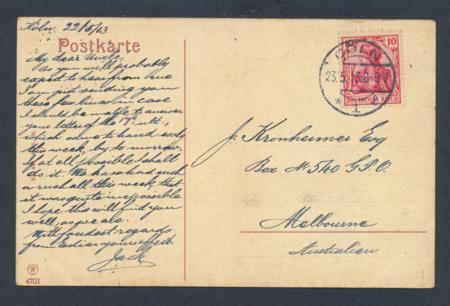 Köln, 22/5/13
Postkarte
My dear Uncle,
As you will probably
expect to hear from me
I am just sending you
these few lines in case
I should be unable to answer
your letter of the 7th ult,
which came to hand early
this week, by to-morrow.
If at all possible I shall
do it. We have had such
a rush all this week, that
it was quite impossible.
I hope this will find you
well, as we are.
With fondest regards
from your affect.
Jack
4703
CÖLN
23.5.
* 1
10
DEUTSCHES REICH
J. Kronheimer Esq
Box No 540 G.P.O.
Melbourne
Australien